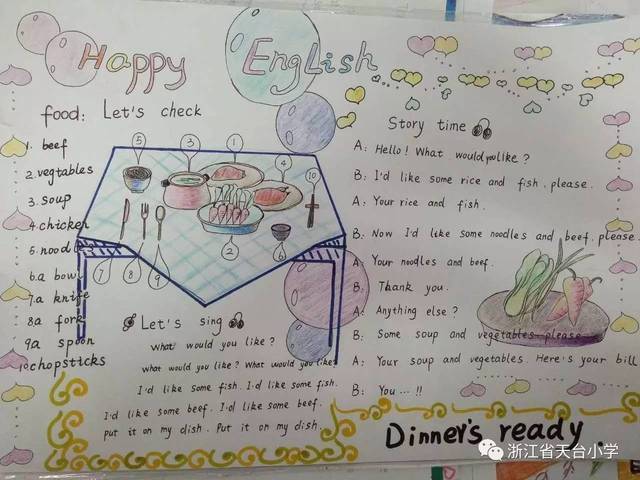 Happy English
food: Let's check
1. beef
2. vegtables
3. soup
4. chicken
5. noodles
6. a bowl
7. a knife
8 a fork
9 a spoon
10 chopsticks
5
3
1
4
10
2
6
7
8
9
Let's sing
what would you like?
what would you like? What would you like?
I'd like some fish. I'd like some fish.
I'd like some beef. I'd like some beef.
put it on my dish. Put it on my dish.
Story time
A: Hello! What would you like?
B: I'd like some rice and fish, please.
A: Your rice and fish.
B: Now I'd like some noodles and beef, please
A: Your noodles and beef.
B: Thank you.
A: Anything else?
B: Some soup and vegetables please
A: Your soup and vegetables. Here's your bill
B: You ...!!
Dinner's ready.
浙江省天台小学